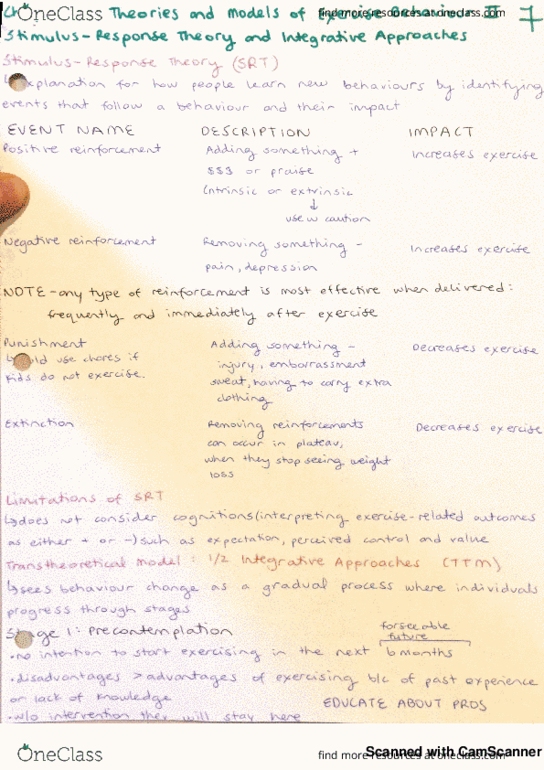 OneClass
find more resources at oneclass.com
Theories and models of II 7
Stimulus-Response Theory and Integrative Approaches
Stimulus-Response Theory (SRT)
↳explanation for how people learn new behaviours by identifying
events that follow a behaviour and their impact
EVENT NAME DESCRIPTION IMPACT
Positive reinforcement Adding something + Increases exercise
$$$ or praise
Intrinsic or extrinsic
↓
use w caution
Negative reinforcement Removing something - Increases exercise
pain, depression
NOTE - any type of reinforcement is most effective when delivered:
frequently and immediately after exercise
Punishment Adding something - Decreases exercise
use chores if injury, embarrassment
kids do not exercise. sweat, having to carry extra
clothing
Extinction Removing reinforcements Decreases exercise
can occur in plateau,
when they stop seeing weight
loss
Limitations of SRT
↳does not consider cognitions(interpreting exercise-related outcomes
as either + or -) such as expectation, perceived control and value
Transtheoretical Model: 1/2 Integrative Approaches (TTM)
↳sees behaviour change as a gradual process where individuals
progress through stages
Stage 1: Precontemplation forseeable
future
•no intention to start exercising in the next 6 months
•disadvantages > advantages of exercising b/c of past experience
or lack of knowledge EDUCATE ABOUT PROS
•w/o intervention they will stay here
OneClass
find more resources at oneclass.com
Scanned with CamScanner